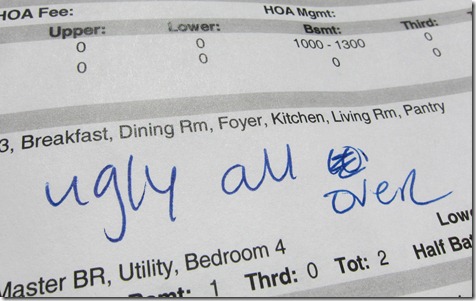 HOA Fee: HOA Mgmt:
Upper: Lower: Bsmt: Third:
0 0 1000 - 1300 0
0 0 0 0
3, Breakfast, Dining Rm, Foyer, Kitchen, Living Rm, Pantry
ugly all over
Master BR, Utility, Bedroom 4 Lowe
Bsmt: 1 Thrd: 0 Tot: 2 Half Bat